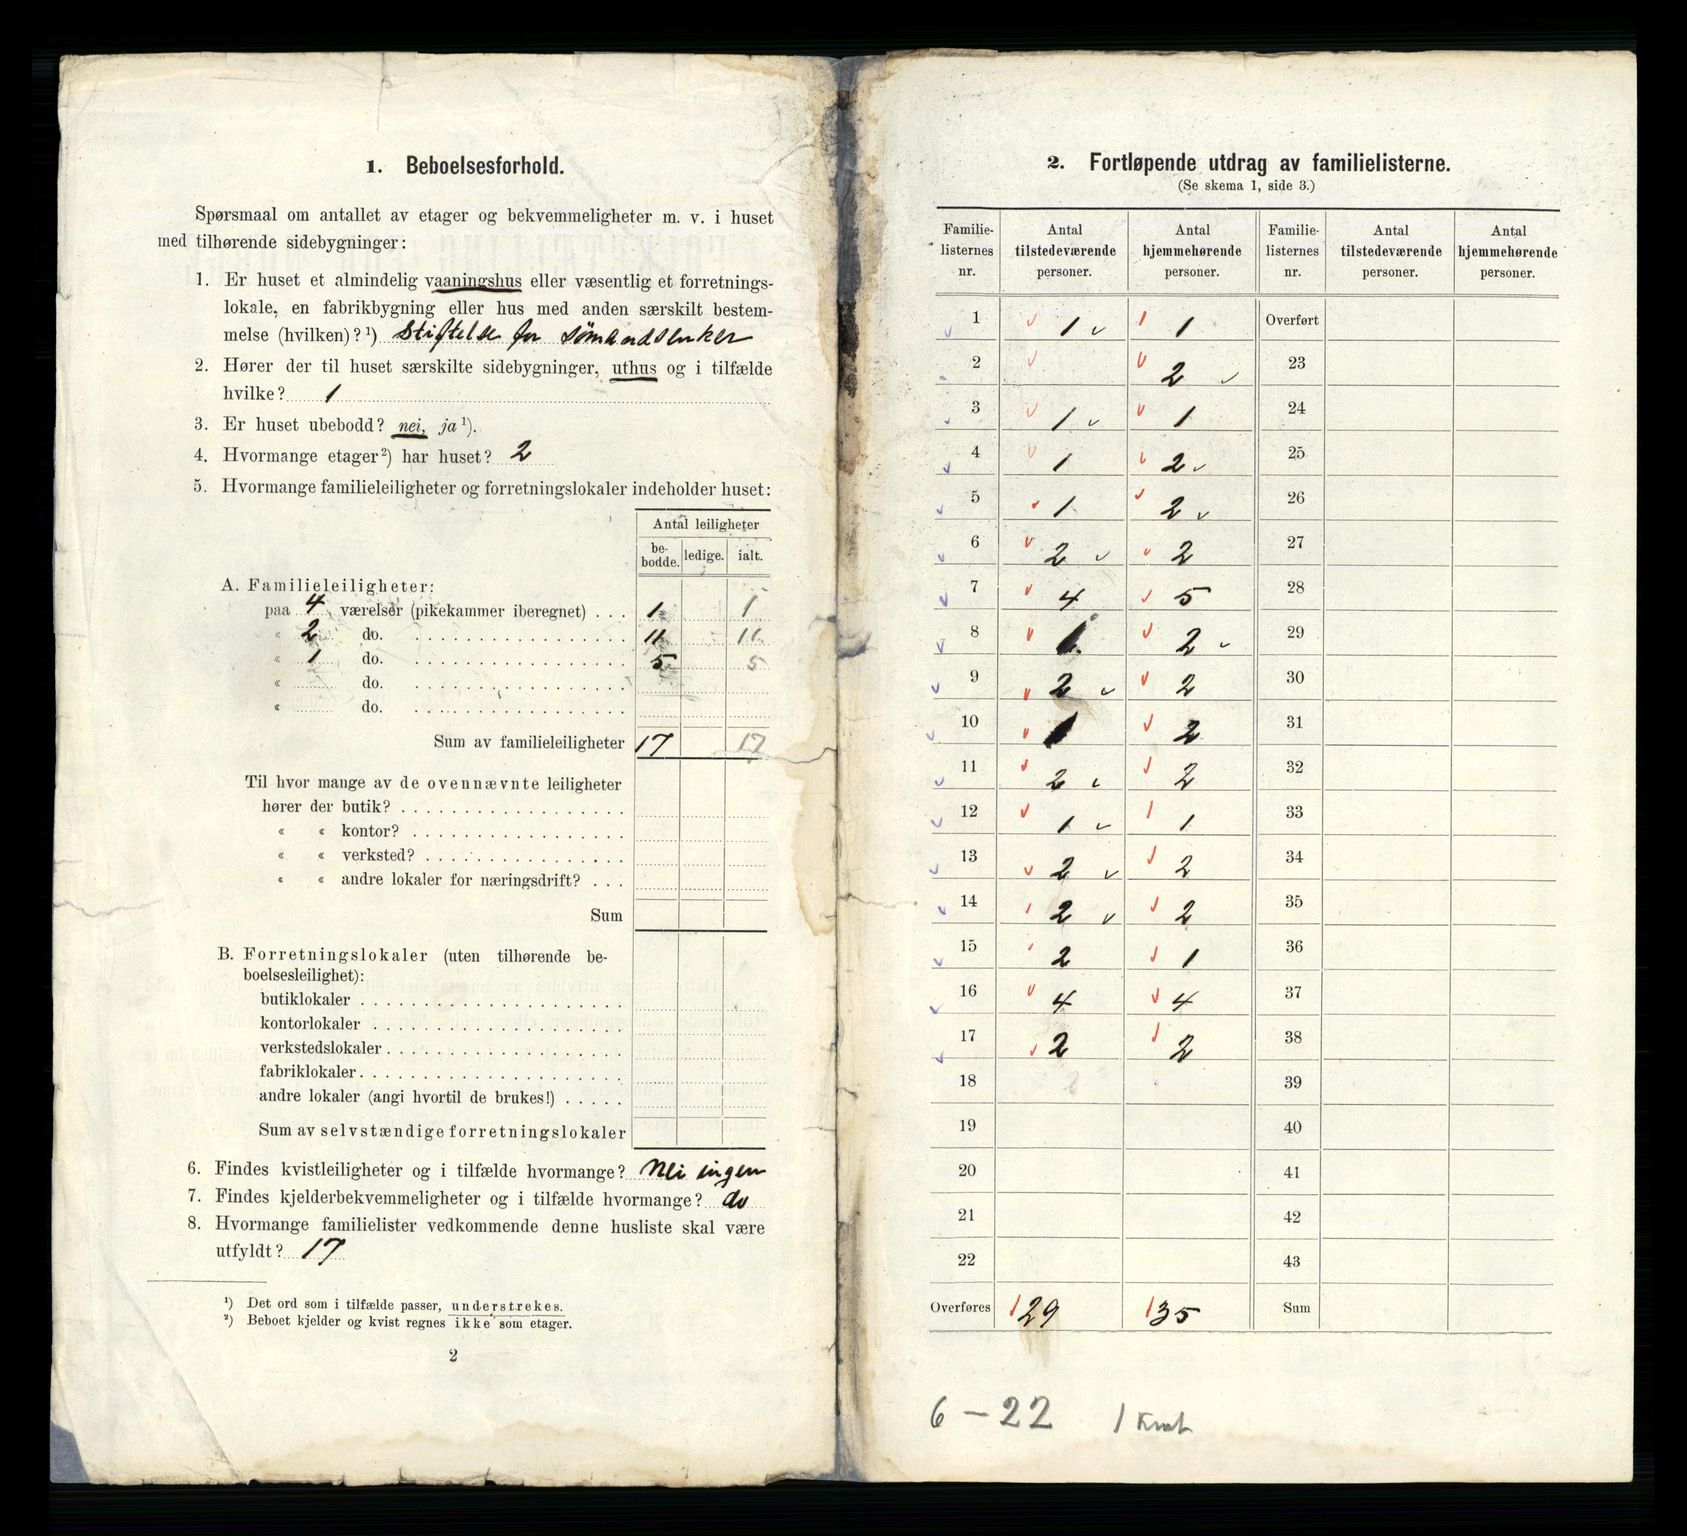 1. Beboelsesforhold.
Spørsmaal om antallet av etager og bekvemmeligheter m. v. i huset
med tilhørende sidebygninger:
1. Er huset et almindelig vaaningshus eller væsentlig et forretnings-
lokale, en fabrikbygning eller hus med anden særskilt bestem-
melse (hvilken)?¹) Stiftelse for sömandsenker
2. Hører der til huset særskilte sidebygninger, uthus og i tilfælde
hvilke? 1
3. Er huset ubebodd? nei, ja¹).
4. Hvormange etager²) har huset? 2
5. Hvormange familieleiligheter og forretningslokaler indeholder huset:
Antal leiligheter
be-bodde. ledige. ialt.
A. Familieleiligheter:
paa 4 værelser (pikekammer iberegnet) . . . 1 1
« 2 do. 11 11
« 1 do. 5 5
« do.
« do.
Sum av familieleiligheter 17 17
Til hvor mange av de ovennævnte leiligheter
hører der butik?
« « kontor?
« « verksted?
« « andre lokaler for næringsdrift? . . .
Sum
B. Forretningslokaler (uten tilhørende be-
boelsesleilighet):
butiklokaler
kontorlokaler
verkstedslokaler
fabriklokaler
andre lokaler (angi hvortil de brukes!)
Sum av selvstændige forretningslokaler
6. Findes kvistleiligheter og i tilfælde hvormange? Nei ingen
7. Findes kjelderbekvemmeligheter og i tilfælde hvormange? do
8. Hvormange familielister vedkommende denne husliste skal være
utfyldt? 17
¹) Det ord som i tilfælde passer, understrekes.
²) Beboet kjelder og kvist regnes ikke som etager.
2
2. Fortløpende utdrag av familielisterne.
(Se skema 1, side 3.)
Familie-listernes nr. Antal tilstedeværende personer. Antal hjemmehørende personer. Familie-listernes nr. Antal tilstedeværende personer. Antal hjemmehørende personer.
1 1 1 Overført
2 2 23
3 1 1 24
4 1 2 25
5 1 2 26
6 2 2 27
7 4 5 28
8 1 2 29
9 2 2 30
10 1 2 31
11 2 2 32
12 1 1 33
13 2 2 34
14 2 2 35
15 2 1 36
16 4 4 37
17 2 2 38
18 39
19 40
20 41
21 42
22 43
Overføres 29 35 Sum
6 – 22 1